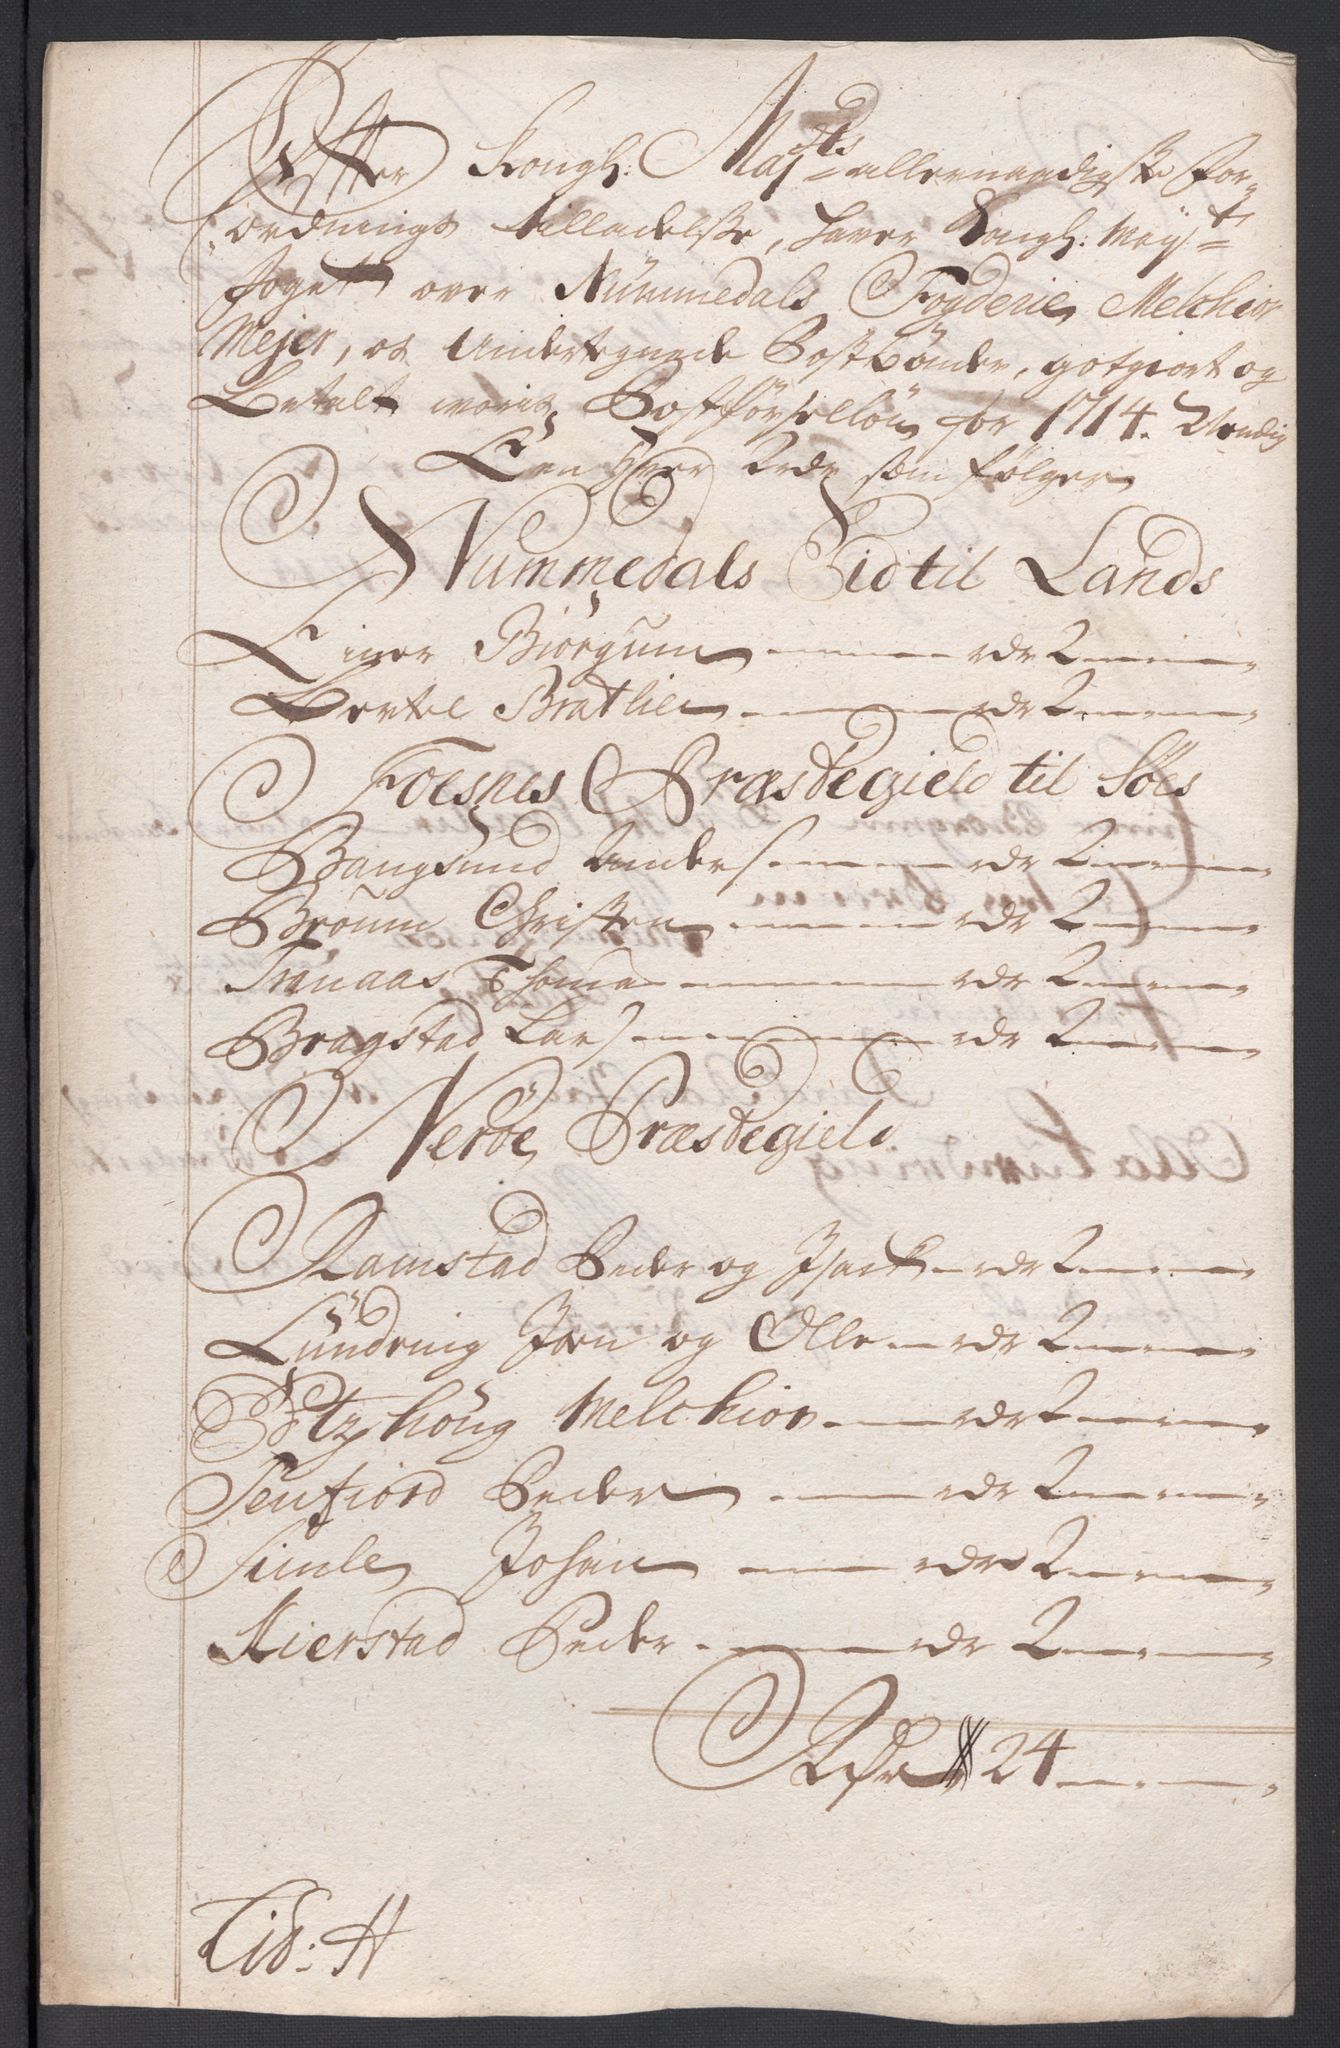 Efter Kongl: Maj:ts allernaadigste for-
ordnings tilladelse, haver Kongl: Maj:ts
foget over Nummedals Fogderie Melchior
Mejer, os Underteignede Postbønder, gotgiort og
Betalt voris Postførselløn for 1714. Nemlig
Een hver Rdr som følger
Nummedals Eid til Lands
Einer Biörgum rdr 2
Bertel Bratlie rdr 2
Foesnes Præstegield til Søes
Bangsund Anders rdr 2
Bröum Christen rdr 2
Tranaas Thomas rdr 2
Bragstad Lars rdr 2
Neröe Præstegield
Ramstad Peder og Isack rdr 2
Lündring Jon og Olle rdr 2
höug Melchior rdr 2
Tenfiord Peder rdr 2
Simle Johan rdr 2
Kierstad Peder rdr 2
Rdr 24
Lid: H